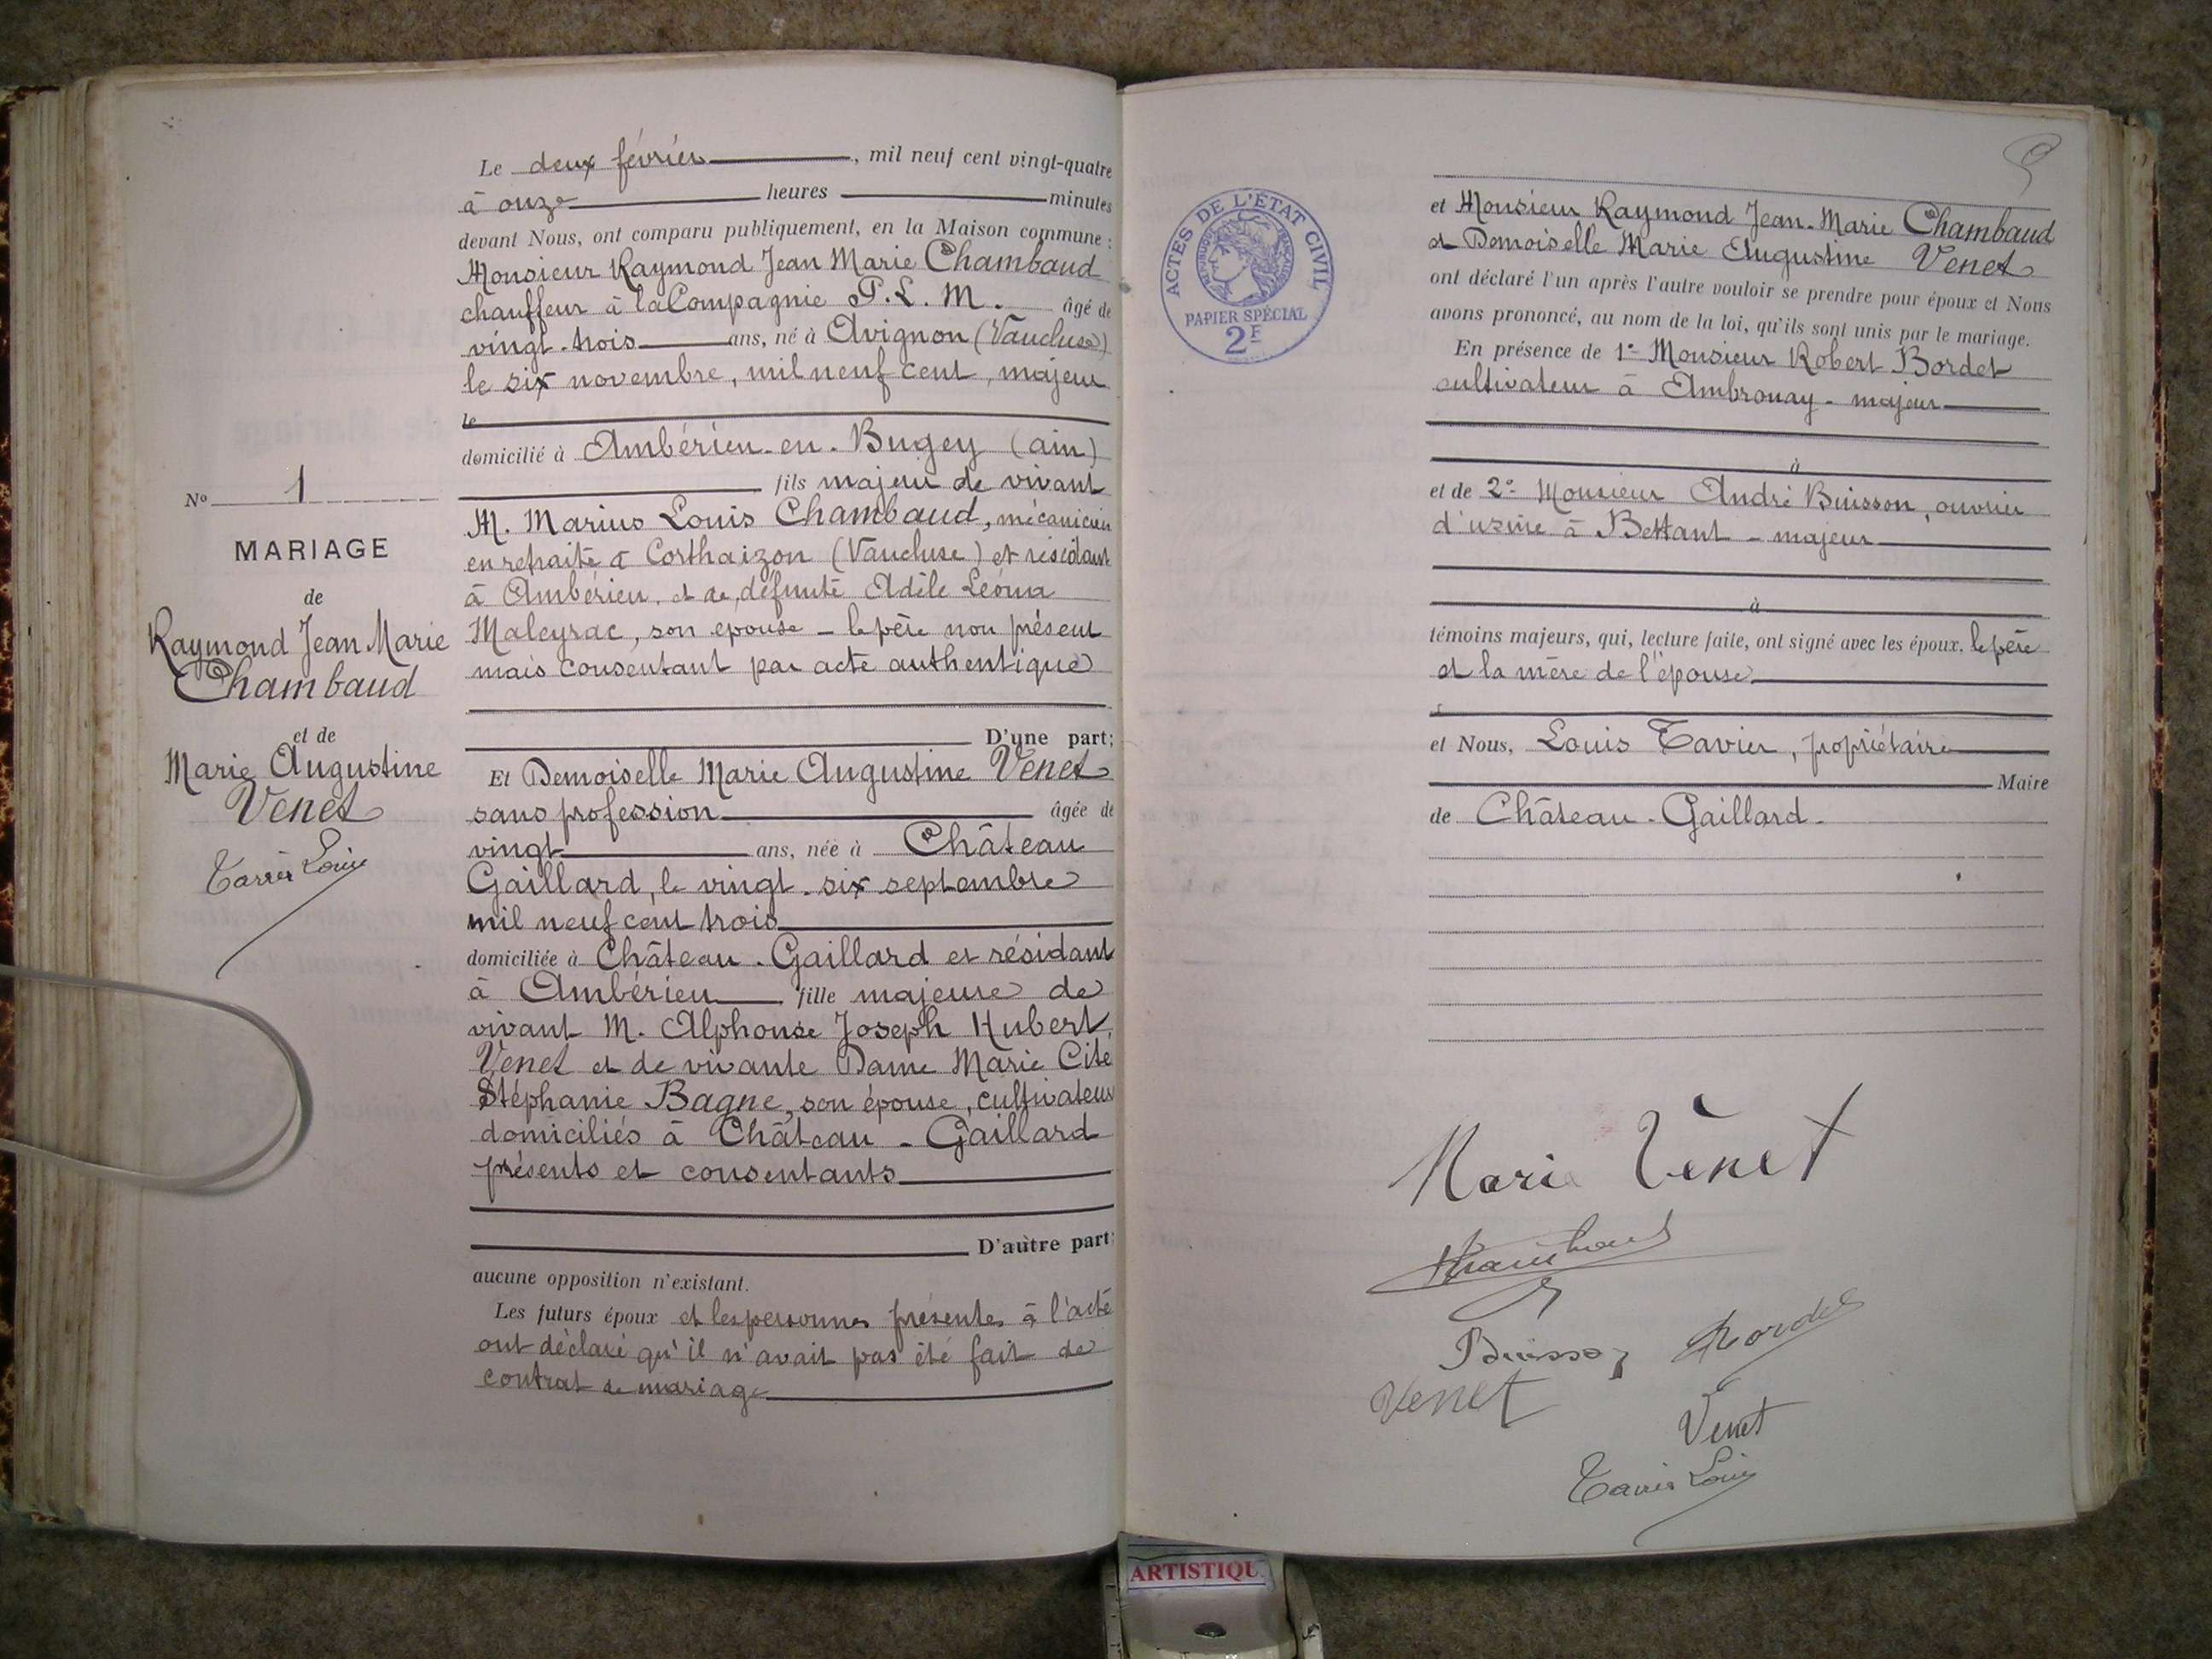 Le deux février, mil neuf cent vingt-quatre
à onze heures minutes
devant Nous, ont comparu publiquement, en la Maison commune :
Monsieur Raymond Jean Marie Chambaud
chauffeur à la Compagnie P.L.M. âgé de
vingt-trois ans, né à Avignon (Vaucluse)
le six novembre, mil neuf cent, majeur
le
domicilié à Ambérieu-en-Bugey (ain)
fils majeur de vivant
M. Marius Louis Chambaud, mécanicien
en retraite à Corthaizon (Vaucluse) et résidant
à Ambérieu, et de défunte Adèle Léona
Maleyrac, son épouse – le père non présent
mais consentant par acte authentique
D'une part;
Et Demoiselle Marie Augustine Venet
sans profession âgée de
vingt ans, née à Château
Gaillard, le vingt-six septembre
mil neuf cent trois
domiciliée à Château-Gaillard et résidant
à Ambérieu fille majeure de
vivant M. Alphonse Joseph Hubert
Venet et de vivante Dame Marie Cité
Stéphanie Bagne, son épouse, cultivateurs
domiciliés à Château-Gaillard
présents et consentants
D'autre part:
aucune opposition n'existant.
Les futurs époux et les personnes présentes à l'acte
ont déclaré qu'il n'avait pas été fait de
contrat de mariage
No 1
MARIAGE
de
Raymond Jean Marie
Chambaud
et de
Marie Augustine
Venet
Tavier Louis
9
ACTES DE L'ÉTAT CIVIL
RÉPUBLIQUE FRANÇAISE
PAPIER SPÉCIAL
2F
et Monsieur Raymond Jean-Marie Chambaud
et Demoiselle Marie Augustine Venet
ont déclaré l'un après l'autre vouloir se prendre pour époux et Nous
avons prononcé, au nom de la loi, qu'ils sont unis par le mariage.
En présence de 1° Monsieur Robert Bordet
cultivateur à Ambronay - majeur
à
et de 2° Monsieur André Buisson, ouvrier
d'usine à Bettant - majeur
à
témoins majeurs, qui, lecture faite, ont signé avec les époux, le père
et la mère de l'épouse
et Nous, Louis Tavier, propriétaire
Maire
de Château-Gaillard.
Marie Venet
Chambaud
Buisson Bordet
Venet
Venet
Tavier Louis
ARTISTIQU